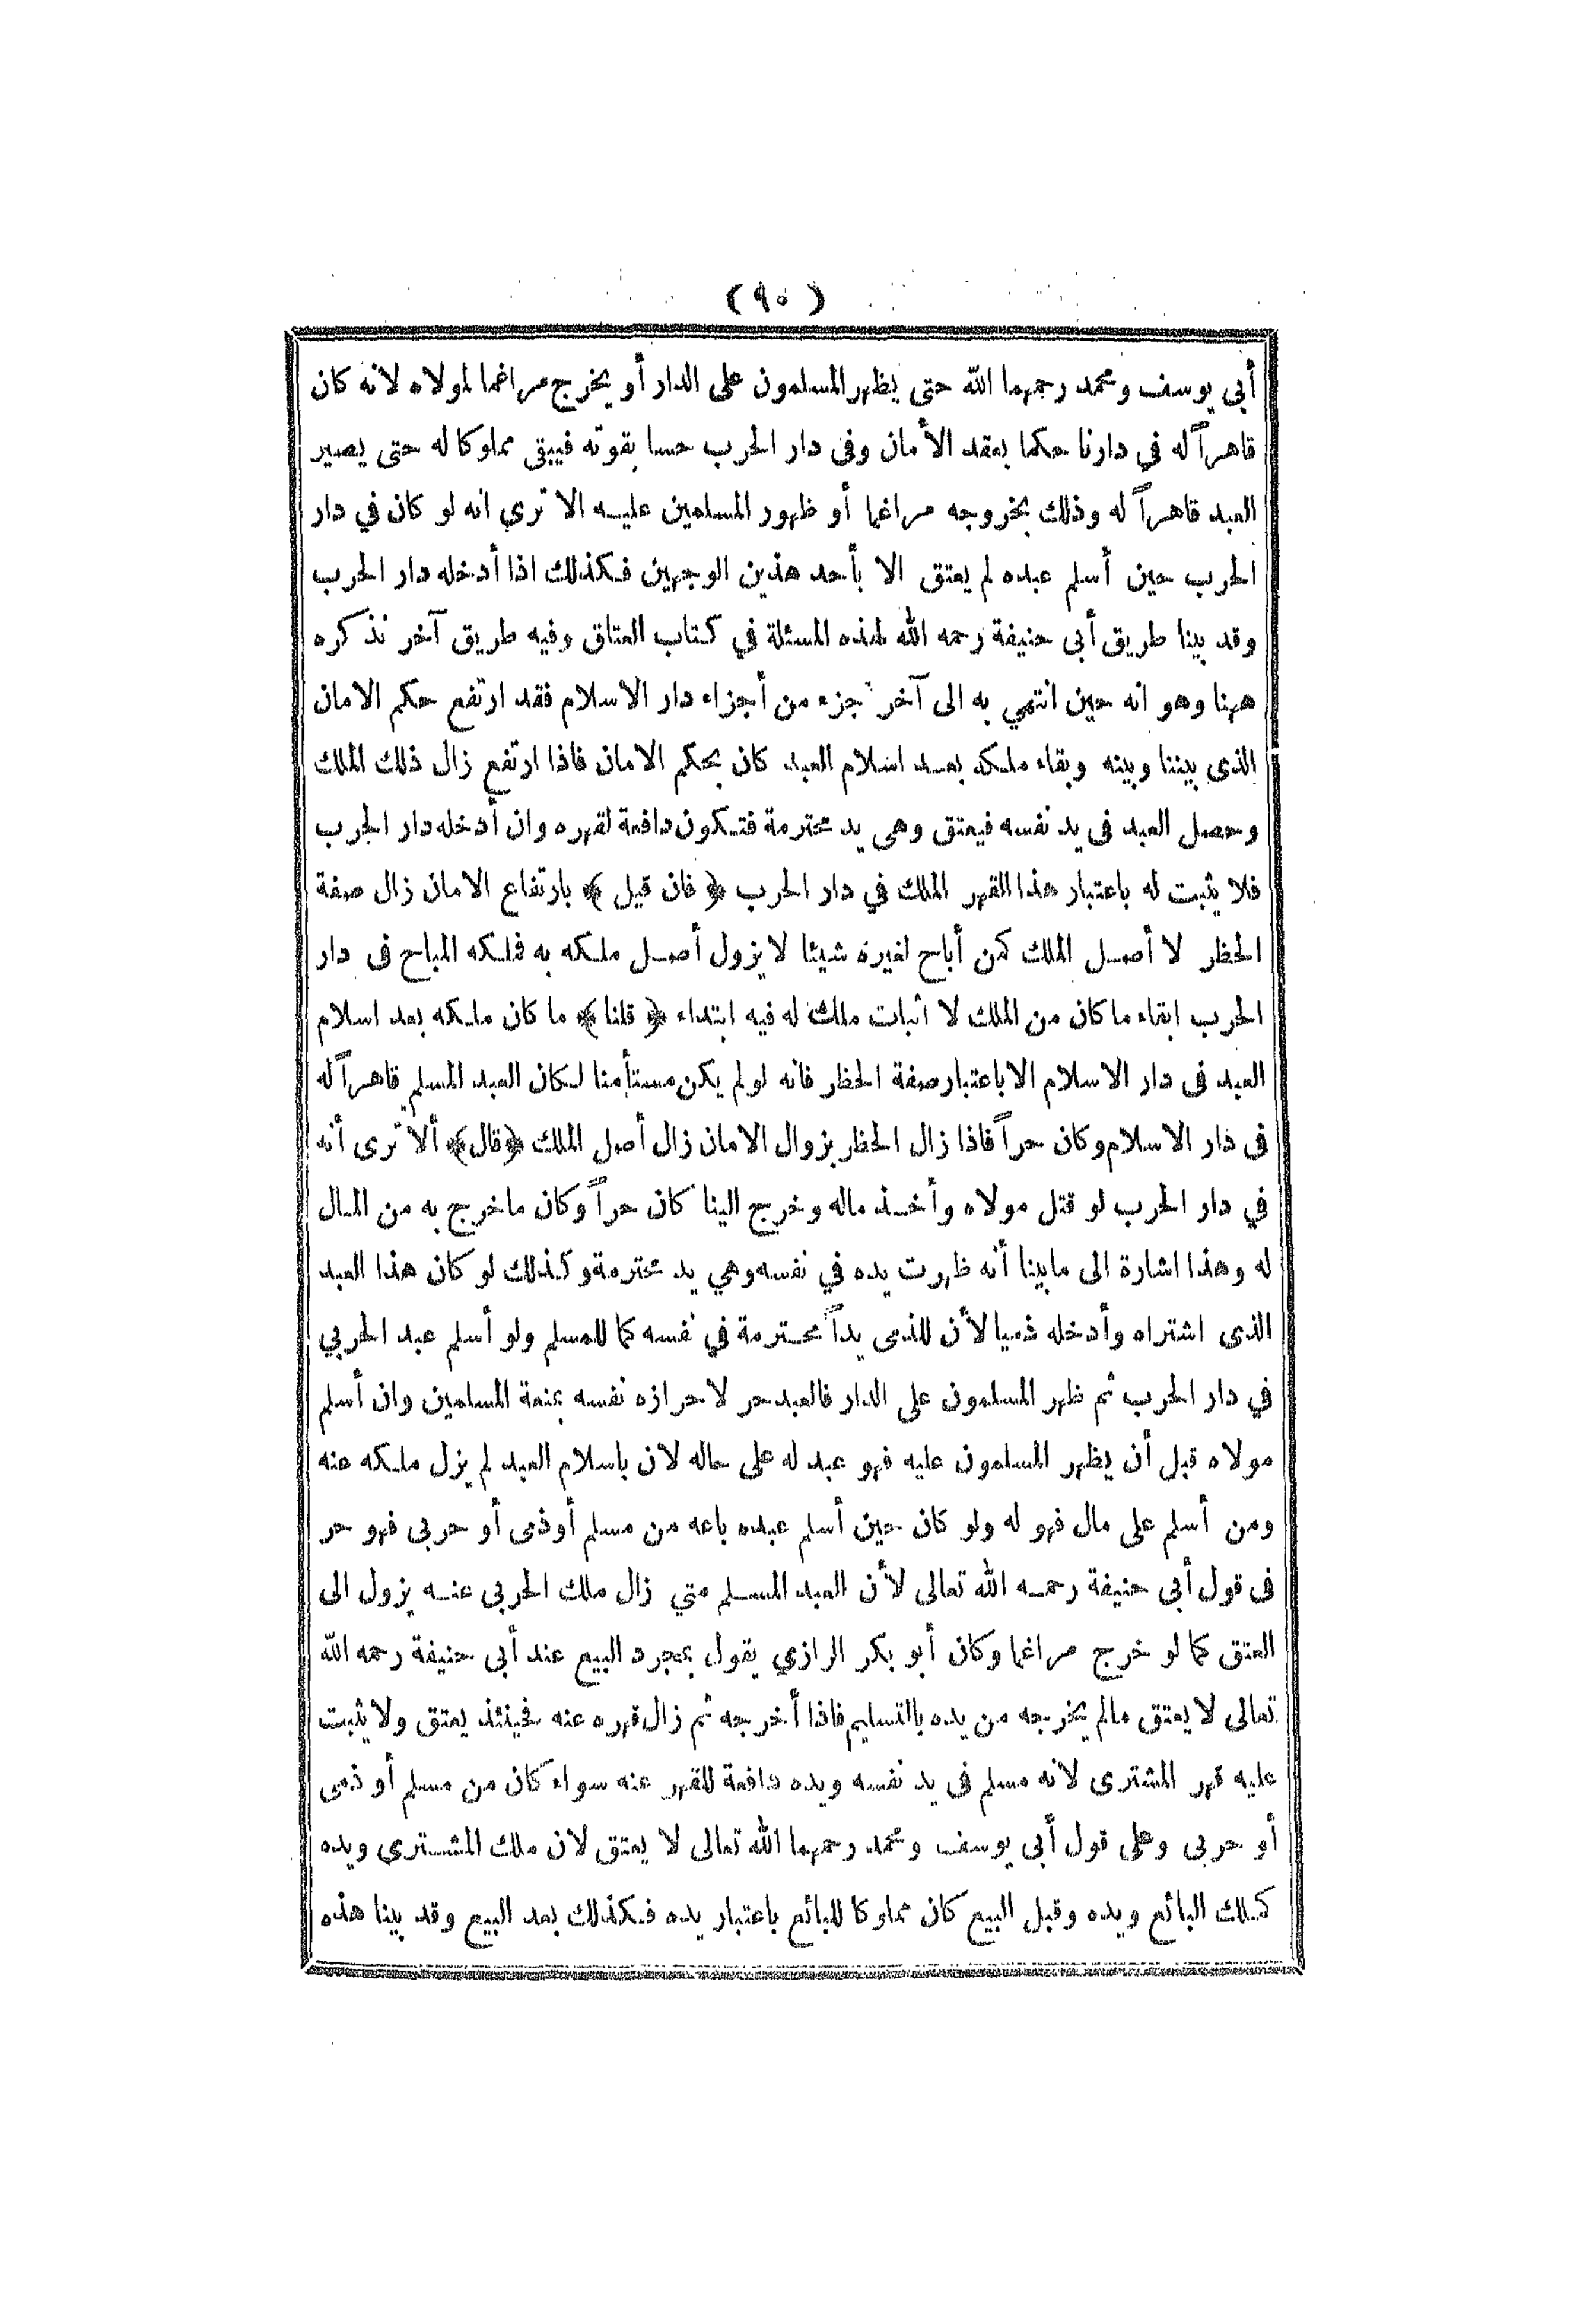 (٩٠)
أبى يوسف ومحمد رحمهما الله حتى يظهر المسلمون على الدار أو يخرج مراغما لمولاه لانه كان
قاهراً له في دارنا حكما بعقد الأمان وفى دار الحرب حسا بقوته فيبقى مملوكا له حتى يصير
العبد قاهراً له وذلك بخروجه مراغما أو ظهور المسلمين عليه الا ترى انه لو كان في دار
الحرب حين أسلم عبده لم يعتق الا بأحد هذين الوجهين فكذلك اذا أدخله دار الحرب
وقد بينا طريق أبى حنيفة رحمه الله لهذه المسئلة في كتاب العتاق وفيه طريق آخر نذكره
ههنا وهو انه حين انتهي به الى آخر جزء من أجزاء دار الاسلام فقد ارتفع حكم الامان
الذى بيننا وبينه وبقاء ملكه بعد اسلام العبد كان بحكم الامان فاذا ارتفع زال ذلك الملك
وحصل العبد فى يد نفسه فيعتق وهى يد محترمة فتكون دافعة لقهره وان أدخله دار الحرب
فلا يثبت له باعتبار هذا القهر الملك في دار الحرب ﴿فان قيل﴾ بارتفاع الامان زال صفة
الحظر لا أصل الملك كمن أباح لغيره شيئا لا يزول أصل ملكه به فلكه المباح فى دار
الحرب ابقاء ما كان من الملك لا اثبات ملك له فيه ابتداء ﴿قلنا﴾ ما كان ملكه بعد اسلام
العبد فى دار الاسلام الا باعتبار صفة الحظر فانه لو لم يكن مستأمنا لكان العبد المسلم قاهراً له
فى دار الاسلام وكان حراً فاذا زال الحظر بزوال الامان زال أصل الملك ﴿قال﴾ ألا ترى أنه
في دار الحرب لو قتل مولاه وأخذ ماله وخرج الينا كان حراً وكان ما خرج به من المال
له وهذا اشارة الى ما بينا أنه ظهرت يده في نفسه وهي يد محترمة وكذلك لو كان هذا العبد
الذى اشتراه وأدخله ذميا لأن للذمى يداً محترمة في نفسه كما للمسلم ولو أسلم عبد الحربي
في دار الحرب ثم ظهر المسلمون على الدار فالعبد حر لاحرازه نفسه بمنعة المسلمين وان أسلم
مولاه قبل أن يظهر المسلمون عليه فهو عبد له على حاله لان باسلام العبد لم يزل ملكه عنه
ومن أسلم على مال فهو له ولو كان حين أسلم عبده باعه من مسلم أو ذمى أو حربى فهو حر
فى قول أبى حنيفة رحمه الله تعالى لأن العبد المسلم متي زال ملك الحربى عنه يزول الى
العتق كما لو خرج مراغما وكان أبو بكر الرازي يقول بمجرد البيع عند أبى حنيفة رحمه الله
تعالى لا يعتق مالم يخرجه من يده بالتسليم فاذا أخرجه ثم زال قهره عنه فحينئذ يعتق ولا يثبت
عليه قهر المشترى لانه مسلم فى يد نفسه ويده دافعة للقهر عنه سواء كان من مسلم أو ذمى
أو حربى وعلى قول أبى يوسف ومحمد رحمهما الله تعالى لا يعتق لان ملك المشترى ويده
كملك البائع ويده وقبل البيع كان مملوكا للبائع باعتبار يده فكذلك بعد البيع وقد بينا هذه